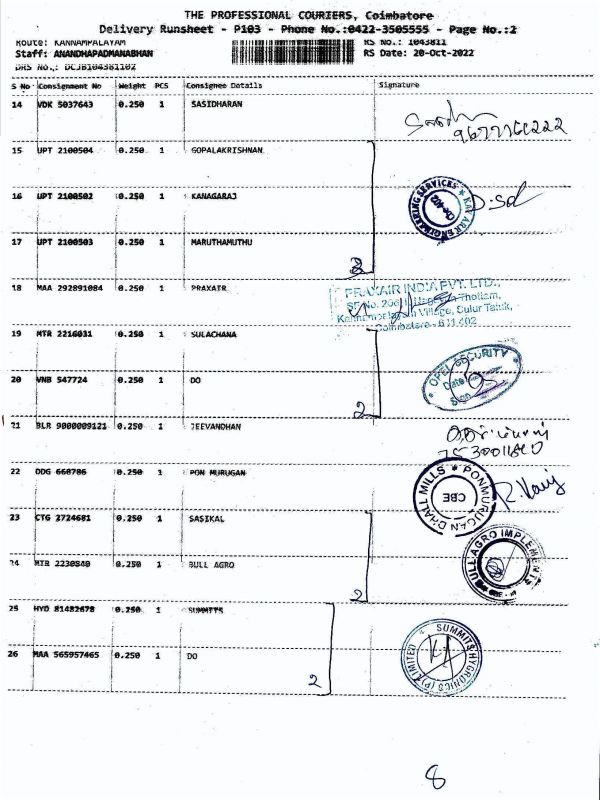 THE PROFESSIONAL COURIERS, Coimbatore
Delivery Runsheet - P103 - Phone No.:0422-3505555 - Page No.:2
Route: KANNAMPALAYAM RS No.: 1043811
Staff: ANANDHAPADMANABHAN RS Date: 20-Oct-2022
DRS No.: DCJB104381102
S No Consignment No Weight PCS Consignee Details Signature
14 VDK 5037643 0.250 1 SASIDHARAN
15 UPT 2100504 0.250 1 GOPALAKRISHNAN
16 UPT 2100502 0.250 1 KANAGARAJ
KAY ARR ENGINEERING SERVICES
17 UPT 2100503 0.250 1 MARUTHAMUTHU
3
18 MAA 292891084 0.250 1 PRAXAIR
PRAXAIR INDIA PVT. LTD.,
Village, Sulur Taluk,
Coimbatore - 641 402
19 MTR 2216031 0.250 1 SULACHANA
20 VNB 547724 0.250 1 DO
OPEL SECURITY
Date
Sign
2
21 BLR 9000009121 0.250 1 JEEVANDHAN
22 DDG 660786 0.250 1 PON MURUGAN
PONMURUGAN DHALL MILLS
CBE
23 CTG 2724681 0.250 1 SASIKAL
24 MTR 2230840 0.250 1 BULL AGRO
BULL AGRO IMPLEMENTS
2
25 HYD 81482678 0.250 1 SUMMITS
26 MAA 565957465 0.250 1 DO
SUMMITS HYGRONICS (P) LIMITED
2
8